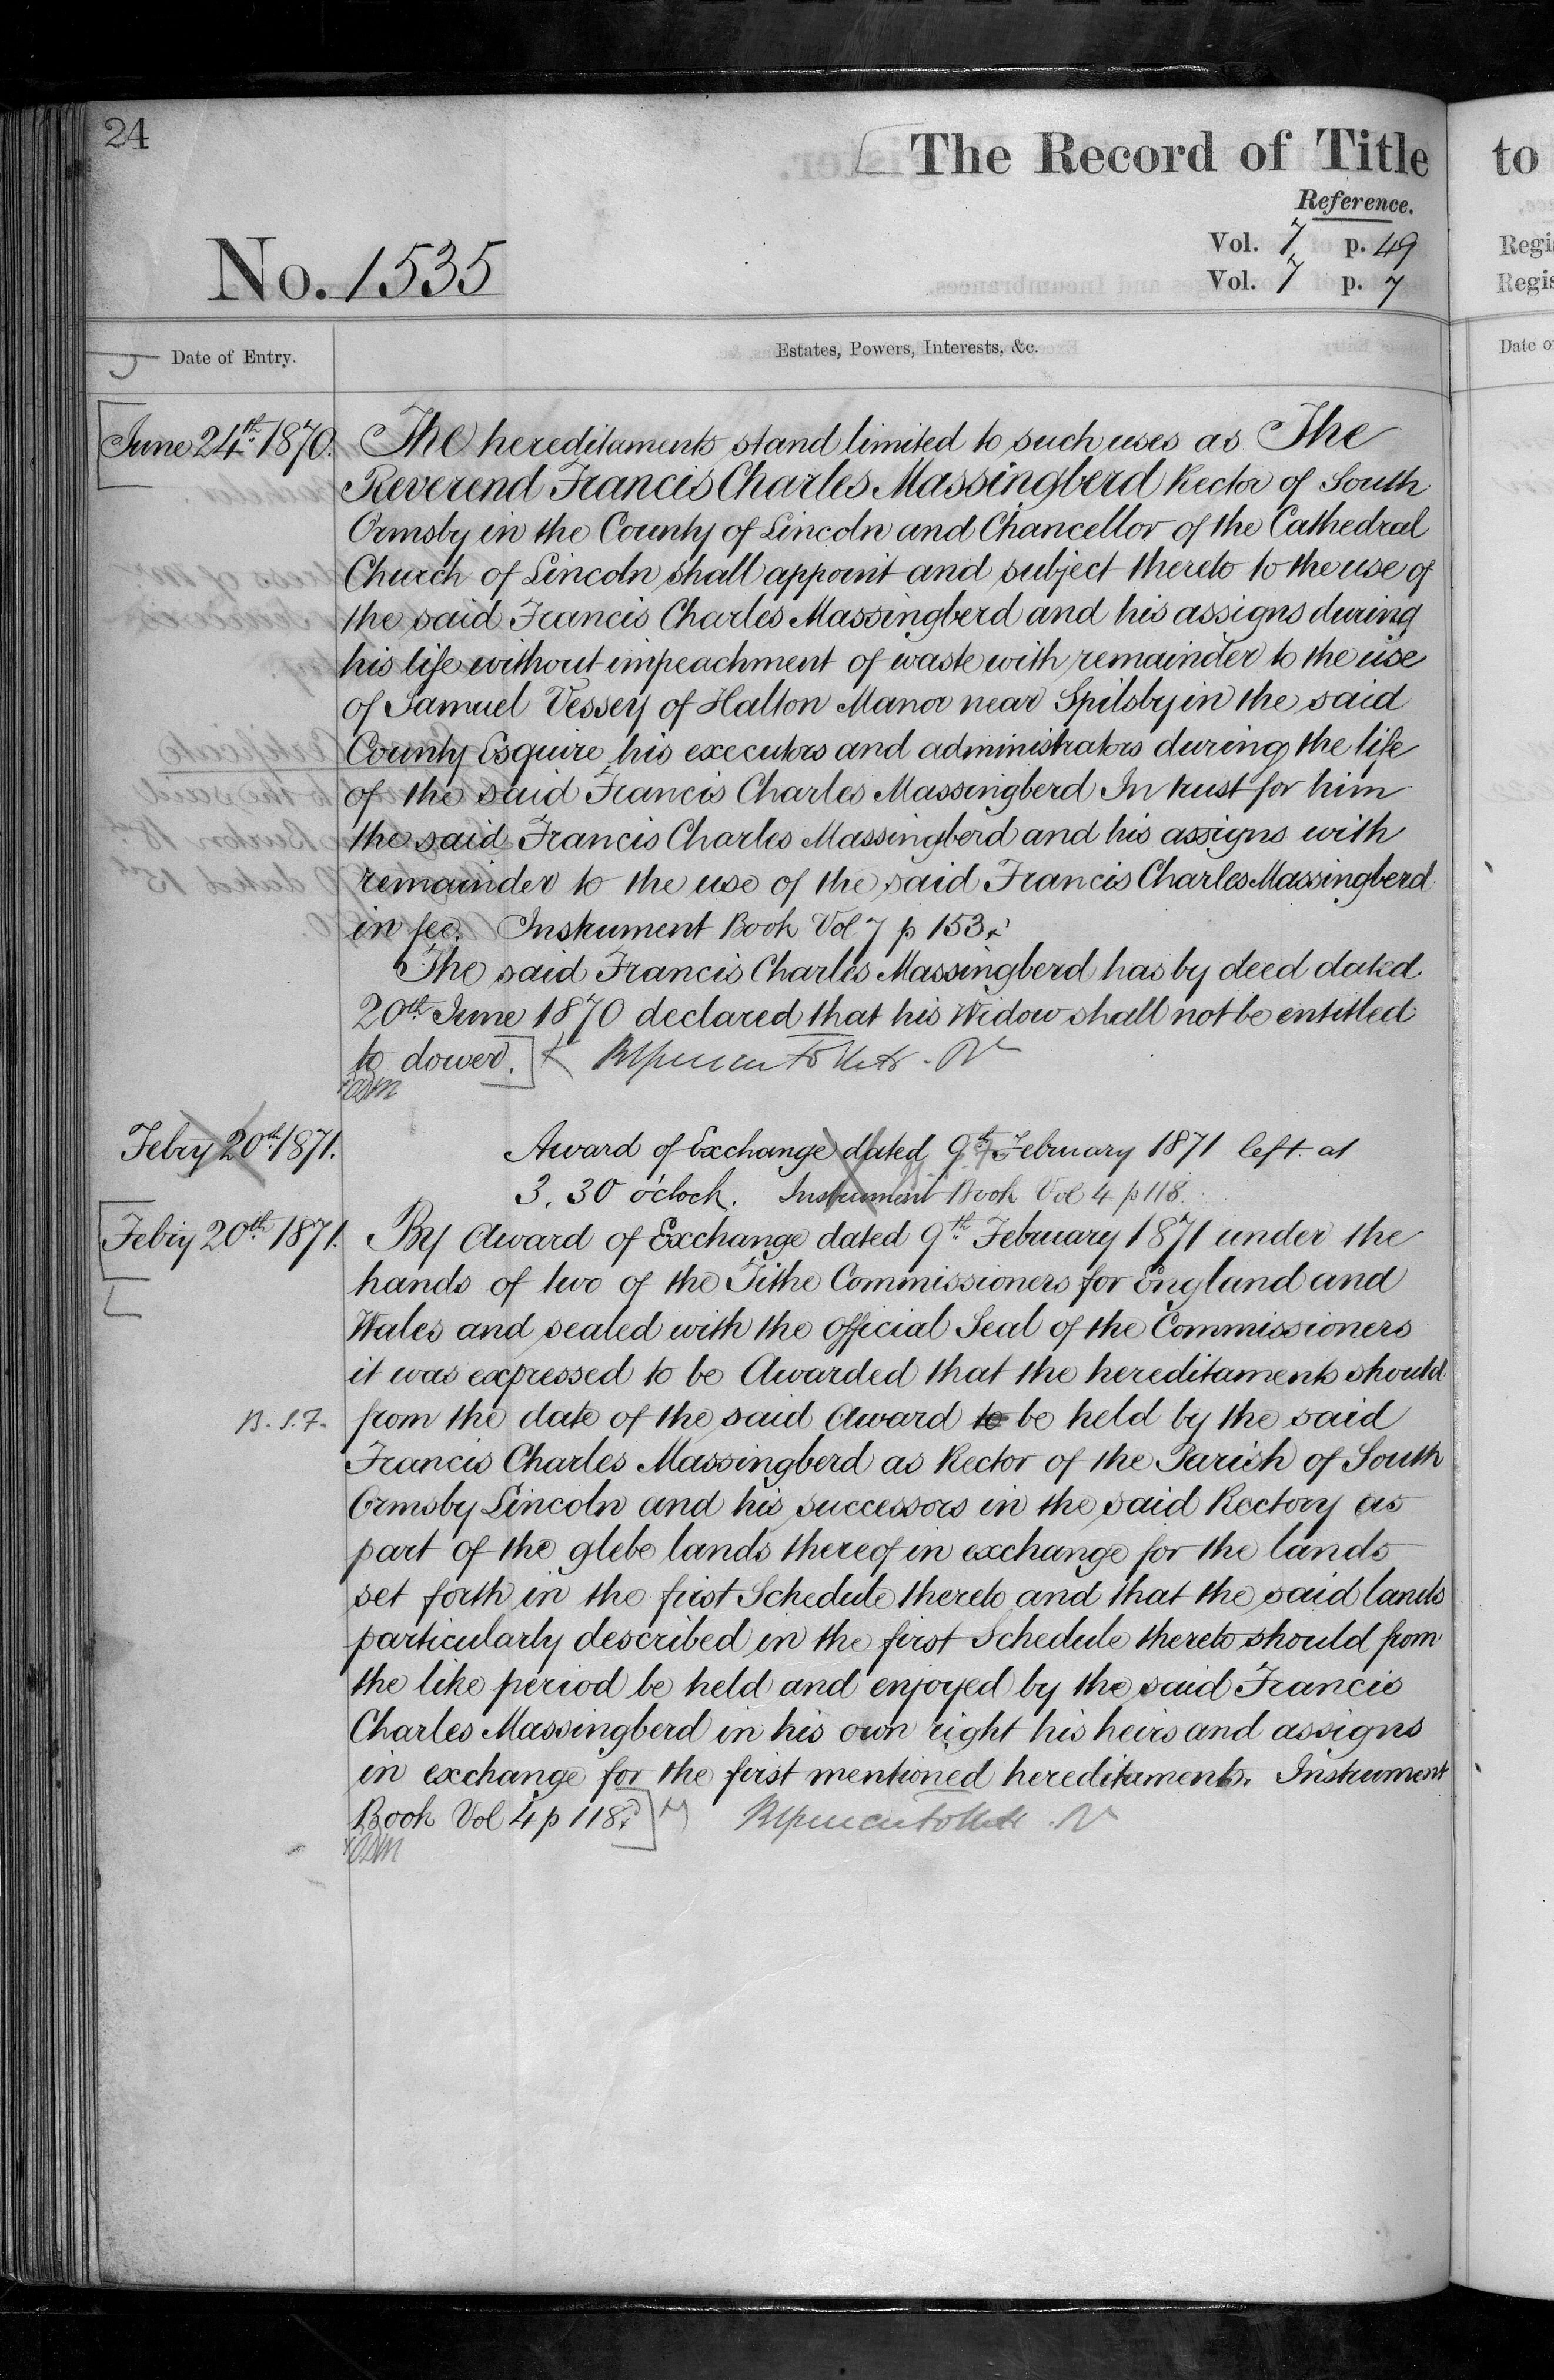 24
The Record of Title
Reference.
Vol. 7 p. 49
No. 1535
Vol. 7 p. 7
Date of Entry.
Estates, Powers, Interests, &c.
June 24th 1870. The hereditaments stand limited to such uses as The
Reverend Francis Charles Massingberd Rector of South
Ormsby in the County of Lincoln and Chancellor of the Cathedral
Church of Lincoln shall appoint and subject thereto to the use of
the said Francis Charles Massingberd and his assigns during
his life without impeachment of waste with remainder to the use
of Samuel Vessey of Halton Manor near Spilsby in the said
County Esquire his executors and administrators during the life
of the said Francis Charles Massingberd In trust for him
the said Francis Charles Massingberd and his assigns with
remainder to the use of the said Francis Charles Massingberd
in fee. Instrument Book Vol 7 p 153.
The said Francis Charles Massingberd has by deed dated
20th June 1870 declared that his Widow shall not be entitled
to dower.
Febry 20th 1871. Award of Exchange dated 9th February 1871 left at
3.30 o'clock. Instrument Book Vol 4 p 118.
Febry 20th 1871. By Award of Exchange dated 9th February 1871 under the
hands of two of the Tithe Commissioners for England and
Wales and sealed with the Official Seal of the Commissioners
it was expressed to be Awarded that the hereditaments should
B.S.7. from the date of the said Award to be held by the said
Francis Charles Massingberd as Rector of the Parish of South
Ormsby Lincoln and his successors in the said Rectory as
part of the glebe lands thereof in exchange for the lands
set forth in the first Schedule thereto and that the said lands
particularly described in the first Schedule thereto should from
the like period be held and enjoyed by the said Francis
Charles Massingberd in his own right his heirs and assigns
in exchange for the first mentioned hereditaments. Instrument
Book Vol 4 p 118.
to
Regi
Regis
Date o